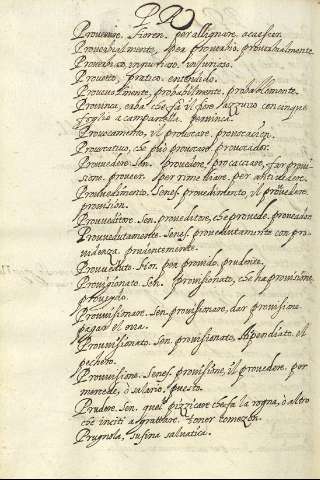 PR
Provenire. Fioren. per allignare, accrescer.
Proverbialmente, per proverbio, proverbialmente.
Proverbioso, ingiurioso,
Provetto, pratico. entendido.
Provevolmente, probabilmente, probablemente.
Provinca, erba che fà il fior azzurro con cinque
foglie a campanella. pervinca.
Provocamento, il provocare, provocacion.
Provocativo, che può provocare. provocador.
Provvedere. Sen. Provedere, procacciare, far provi
sione. proveer. Per rimediare. per antivedere.
Provvedimento. Senes. provedimento, il provedere.
provision.
Provveditore. Sen. proveditore, che provede. proveedor.
Provvedutamente. Senes. provedutamente con pru
videnza. prudentemente.
Provveduto. Fior. per provido, prudente.
Provigionato. Sen. provisionato, che ha provisione,
proveydo.
Provvisionare. Sen. provisionare, dar provisione
pagar el
Provvisionato. Sen. provisionato, stipendiato. el
pechero.
Provvisione. Senes. provisione, il provedere. per
mercede, ò salario. puesto.
Prudere. Sen. quel pizzicare che fa la rogna, ò altro
che inciti a grattare. tener comezon.
Prugnola, susina salvatica.